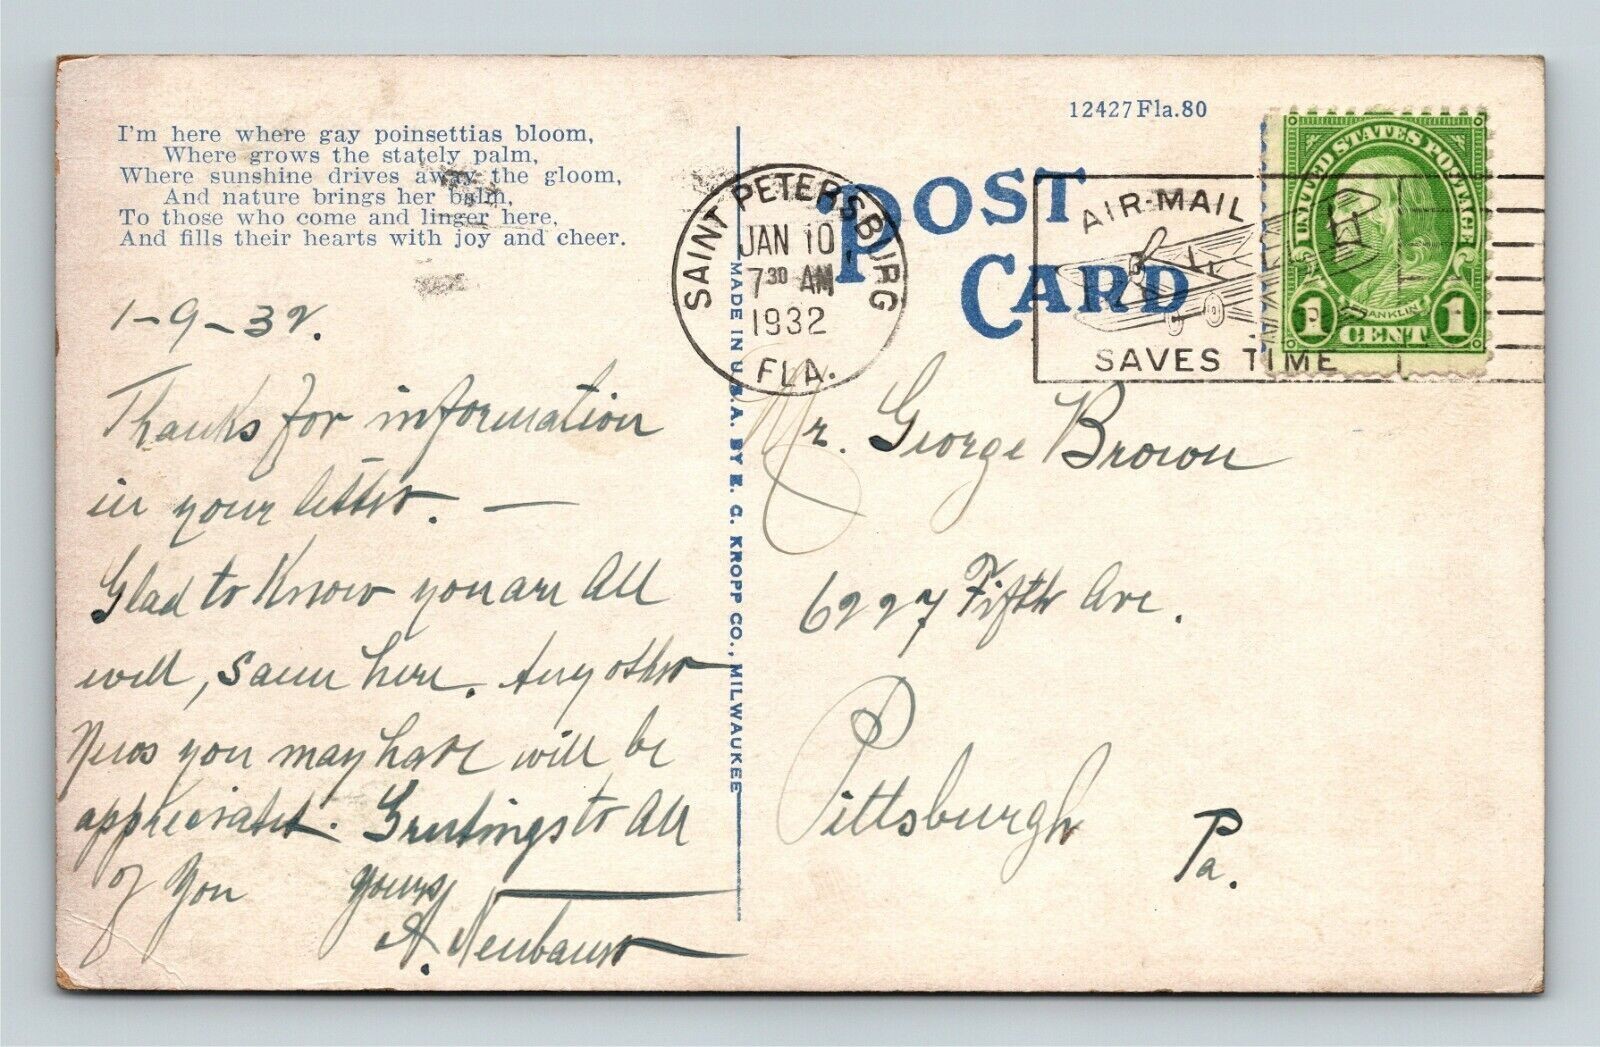 I'm here where gay poinsettias bloom,
Where grows the stately palm,
Where sunshine drives away the gloom,
And nature brings her balm,
To those who come and linger here,
And fills their hearts with joy and cheer.
1-9-32.
Thanks for information
in your letter. —
Glad to Know you are All
well, Same here. Any other
News you may have will be
appreciated. Greetings to All
of You yours
A. Neubauer
MADE IN U.S.A. BY E. C. KROPP CO., MILWAUKEE
12427 Fla.80
POST
CARD
SAINT PETERSBURG
JAN 10
7 30 AM
1932
FLA.
AIR-MAIL
SAVES TIME
UNITED STATES POSTAGE
FRANKLIN
1 CENT 1
Mr. George Brown
6227 Fifth Ave.
Pittsburgh
Pa.